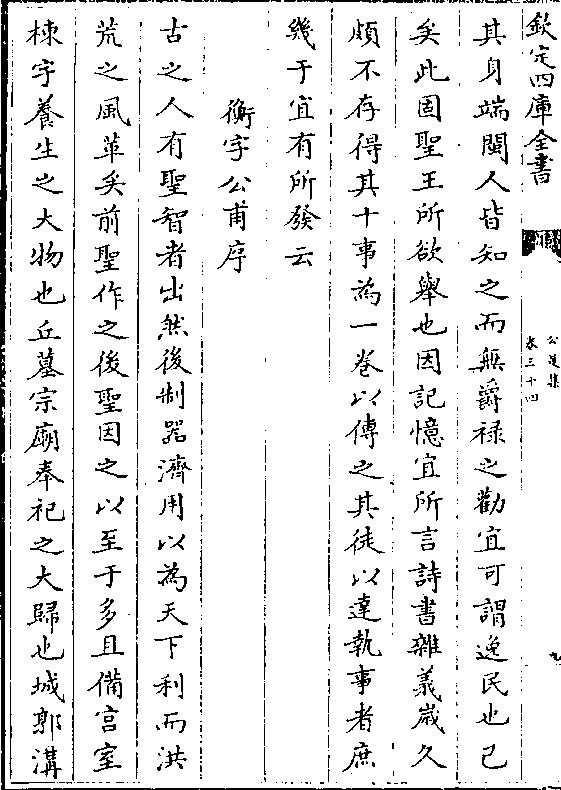 欽定四庫全書
公是集
卷三十四
九
其身端閨人皆知之而無爵祿之勸宜可謂逸民也已
矣此固聖王所欲舉也因記憶宜所言詩書雜義嵗久
頗不存得其十事為一卷以傳之其徒以達執事者庶
幾于宜有所發云
衡字公甫序
古之人有聖智者出然後制器濟用以為天下利而洪
荒之風革矣前聖作之後聖因之以至于多且備宫室
棟宇養生之大物也丘墓宗廟奉祀之大歸也城郭溝